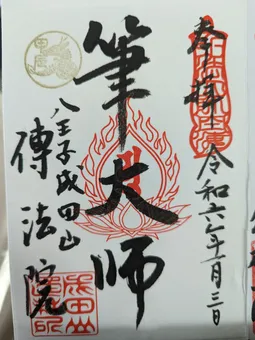 奉拝
令和六年一月三日
筆大師
八王子成田山
傳法院
甲辰